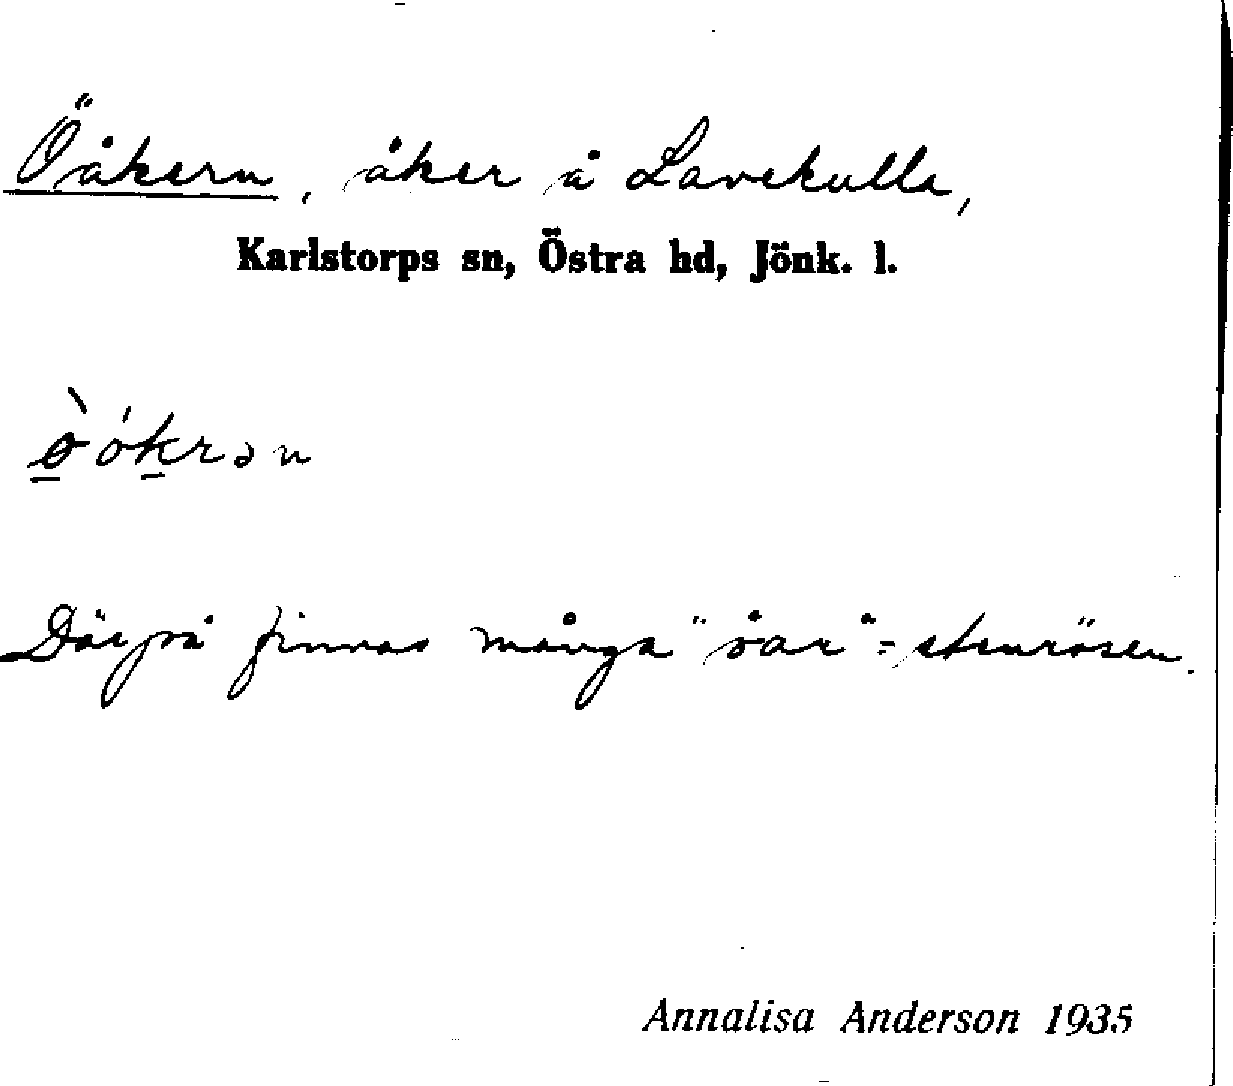 Öåkern, åker å Lavekulla,
Karlstorps sn, Östra hd, Jönk. l.
Därpå finnas många "öar" = stenrösen.
Annalisa Anderson 1935